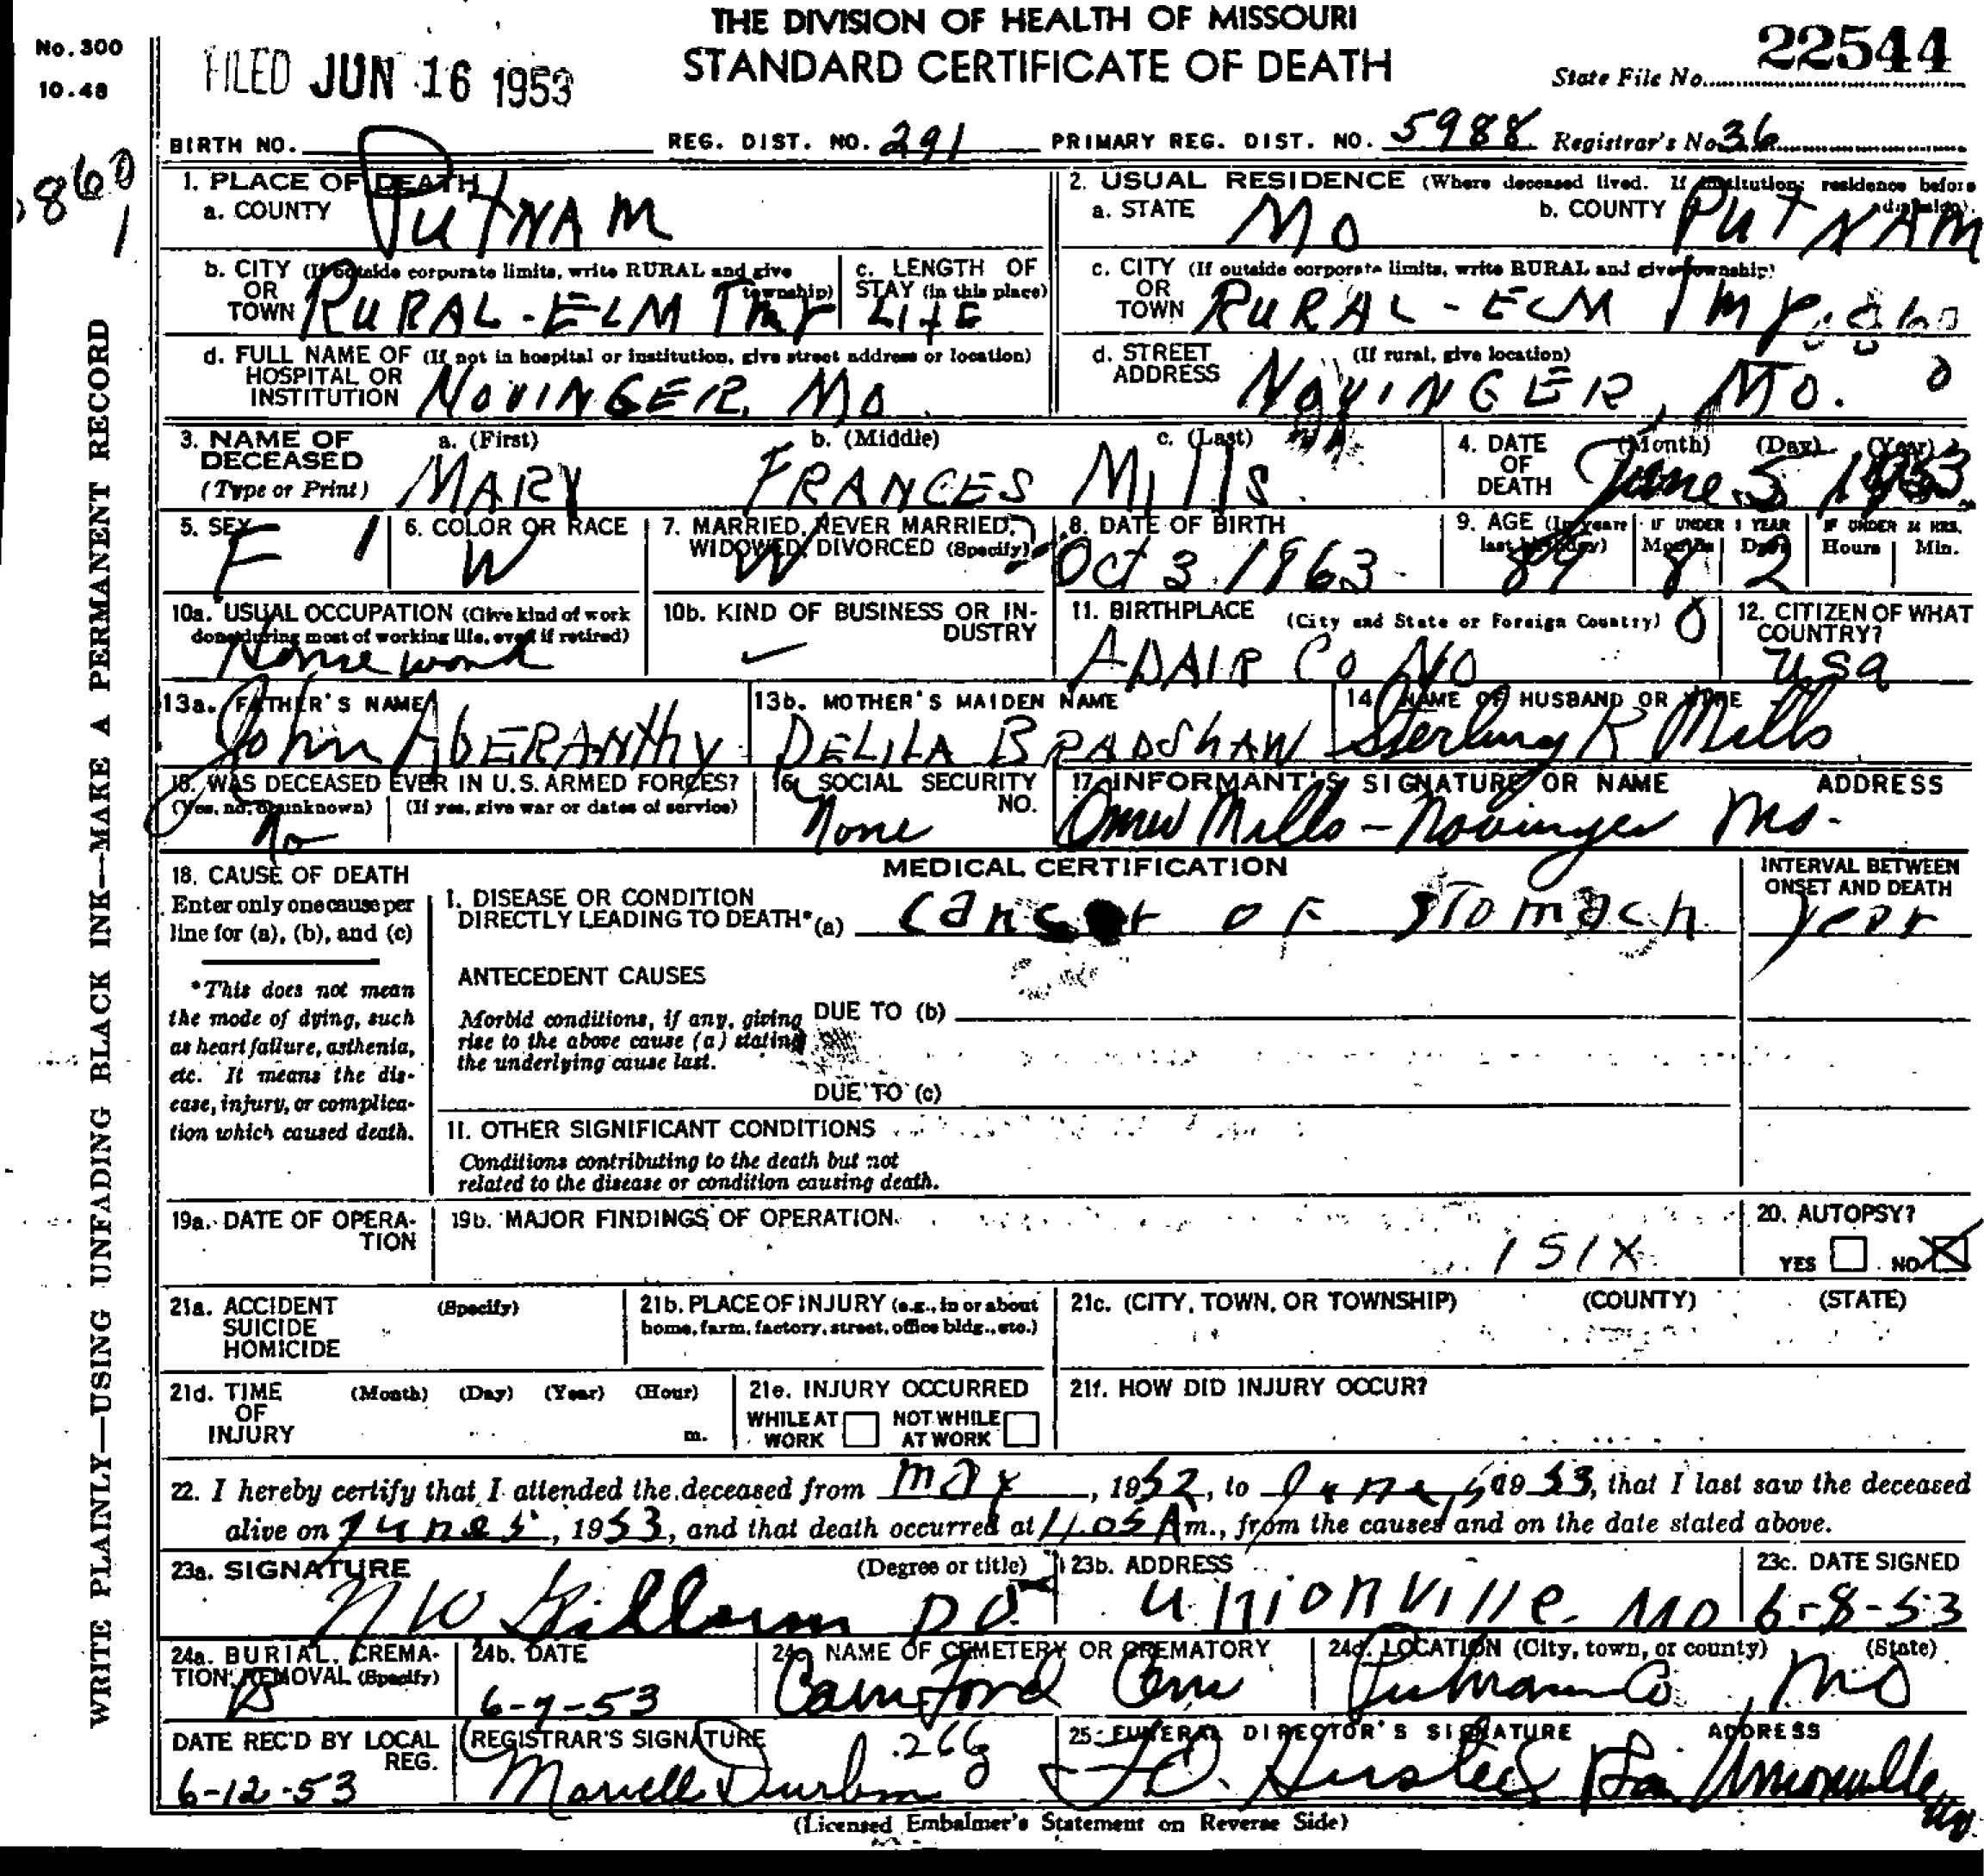 THE DIVISION OF HEALTH OF MISSOURI
STANDARD CERTIFICATE OF DEATH
No. 300
10.48
FILED JUN 16 1953
State File No. 22544
BIRTH NO. REG. DIST. NO. 291 PRIMARY REG. DIST. NO. 5988 Registrar's No. 36
860
1
WRITE PLAINLY—USING UNFADING BLACK INK—MAKE A PERMANENT RECORD
1. PLACE OF DEATH
a. COUNTY PUTNAM
2. USUAL RESIDENCE (Where deceased lived. If institution: residence before admission).
a. STATE MO b. COUNTY PUTNAM
b. CITY (If outside corporate limits, write RURAL and give township)
OR TOWN RURAL-ELM Twp
c. LENGTH OF STAY (in this place) LifE
c. CITY (If outside corporate limits, write RURAL and give township)
OR TOWN RURAL - ELM Twp. 860
0
d. FULL NAME OF (If not in hospital or institution, give street address or location)
HOSPITAL OR INSTITUTION NOVINGER, MO
d. STREET ADDRESS (If rural, give location)
NOVINGER, MO.
3. NAME OF DECEASED (Type or Print)
a. (First) MARY b. (Middle) FRANCES c. (Last) Mills
4. DATE OF DEATH (Month) (Day) (Year) June 5 1953
5. SEX F 1
6. COLOR OR RACE W
7. MARRIED, NEVER MARRIED, WIDOWED, DIVORCED (Specify) W
8. DATE OF BIRTH Oct 3 1963
9. AGE (In years last birthday) 89 IF UNDER 1 YEAR Months 8 Days 2 IF UNDER 24 HRS. Hours Min.
10a. USUAL OCCUPATION (Give kind of work done during most of working life, even if retired) Housework
10b. KIND OF BUSINESS OR INDUSTRY
11. BIRTHPLACE (City and State or Foreign Country) 0
ADAIR Co MO
12. CITIZEN OF WHAT COUNTRY? USA
13a. FATHER'S NAME John AbERANthy
13b. MOTHER'S MAIDEN NAME DELILA BRADShAW
14. NAME OF HUSBAND OR WIFE Sterling R Mills
15. WAS DECEASED EVER IN U.S. ARMED FORCES?
(Yes, no, or unknown) (If yes, give war or dates of service)
No
16. SOCIAL SECURITY NO. None
17. INFORMANT'S SIGNATURE OR NAME ADDRESS
Omer Mills - Novinger Mo.
MEDICAL CERTIFICATION
INTERVAL BETWEEN ONSET AND DEATH
18. CAUSE OF DEATH
Enter only one cause per line for (a), (b), and (c)
*This does not mean the mode of dying, such as heart failure, asthenia, etc. It means the disease, injury, or complication which caused death.
I. DISEASE OR CONDITION
DIRECTLY LEADING TO DEATH* (a) cancer of stomach year
ANTECEDENT CAUSES
Morbid conditions, if any, giving rise to the above cause (a) stating the underlying cause last.
DUE TO (b)
DUE TO (c)
II. OTHER SIGNIFICANT CONDITIONS
Conditions contributing to the death but not related to the disease or condition causing death.
19a. DATE OF OPERATION
19b. MAJOR FINDINGS OF OPERATION
151X
20. AUTOPSY?
YES NO X
21a. ACCIDENT SUICIDE HOMICIDE (Specify)
21b. PLACE OF INJURY (e.g., in or about home, farm, factory, street, office bldg., etc.)
21c. (CITY, TOWN, OR TOWNSHIP) (COUNTY) (STATE)
21d. TIME OF INJURY (Month) (Day) (Year) (Hour) m.
21e. INJURY OCCURRED
WHILE AT WORK NOT WHILE AT WORK
21f. HOW DID INJURY OCCUR?
22. I hereby certify that I attended the deceased from may, 1952, to June 5 1953, that I last saw the deceased
alive on June 5, 1953, and that death occurred at 11.05 A m., from the causes and on the date stated above.
23a. SIGNATURE (Degree or title) DO
23b. ADDRESS Unionville Mo
23c. DATE SIGNED 6-8-53
24a. BURIAL, CREMATION, REMOVAL (Specify) B
24b. DATE 6-7-53
24c. NAME OF CEMETERY OR CREMATORY Cem
24d. LOCATION (City, town, or county) (State)
Putnam Co, Mo
DATE REC'D BY LOCAL REG. 6-12-53
REGISTRAR'S SIGNATURE Marvell Durbin
25. FUNERAL DIRECTOR'S SIGNATURE ADDRESS
Unionville Mo.
(Licensed Embalmer's Statement on Reverse Side)